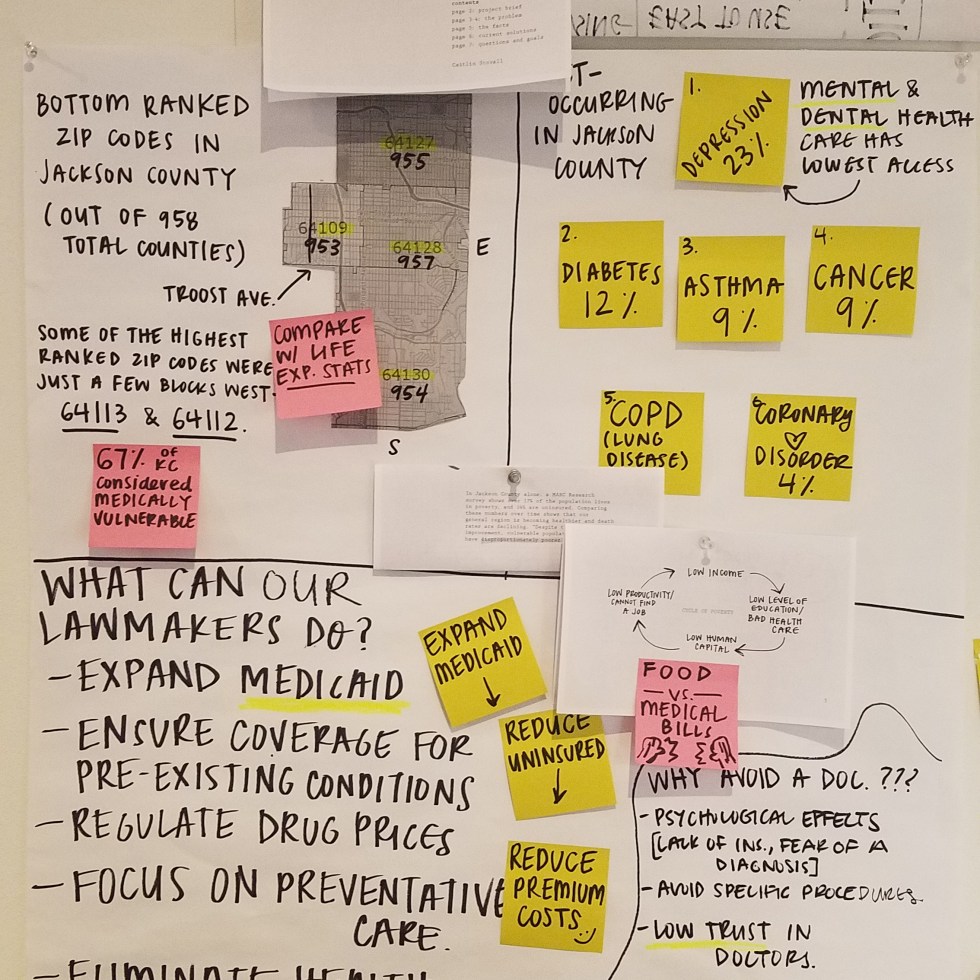 contents
page 2: project brief
page 3-4: the problem
page 5: the facts
page 6: current solutions
page 7: questions and goals
Caitlin Stovall
BOTTOM RANKED
ZIP CODES IN
JACKSON COUNTY
(OUT OF 958
TOTAL COUNTIES)
64127
955
64109
953
64128
957
E
TROOST AVE.
64130
954
S
SOME OF THE HIGHEST
RANKED ZIP CODES WERE
JUST A FEW BLOCKS WEST-
64113 & 64112.
COMPARE
W/ LIFE
EXP. STATS
67% OF KC
considered
MEDICALLY
VULNERABLE
OCCURRING
IN JACKSON
COUNTY
1.
DEPRESSION
23%
MENTAL &
DENTAL HEALTH
CARE HAS
LOWEST ACCESS
2.
DIABETES
12%
3.
ASTHMA
9%
4.
CANCER
9%
5.
COPD
(LUNG
DISEASE)
6.
CORONARY
DISORDER
4%
In Jackson County alone, a MARC Research
survey shows over 17% of the population lives
in poverty, and 16% are uninsured. Comparing
these numbers over time shows that our
general region is becoming healthier and death
rates are declining. "Despite
improvement, vulnerable
have disproportionately poorer
LOW INCOME
LOW LEVEL OF
EDUCATION/
BAD HEALTH
CARE
LOW HUMAN
CAPITAL
LOW PRODUCTIVITY/
CANNOT FIND
A JOB
CYCLE OF POVERTY
FOOD
— VS. —
MEDICAL
BILLS
WHAT CAN OUR
LAWMAKERS DO?
- EXPAND MEDICAID
- ENSURE COVERAGE FOR
PRE-EXISTING CONDITIONS
- REGULATE DRUG PRICES
- FOCUS ON PREVENTATIVE
CARE.
- ELIMINATE HEALTH
EXPAND
MEDICAID
REDUCE
UNINSURED
REDUCE
PREMIUM
COSTS
WHY AVOID A DOC. ???
- PSYCHOLOGICAL EFFECTS
[LACK OF INS., FEAR OF A
DIAGNOSIS]
- AVOID SPECIFIC PROCEDURES.
- LOW TRUST IN
DOCTORS.